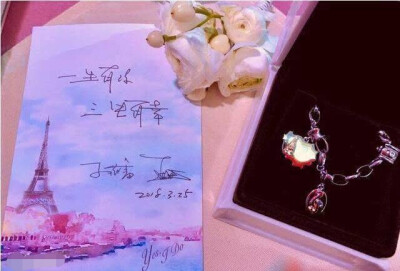 一生有你
三生有幸
2018.3.25